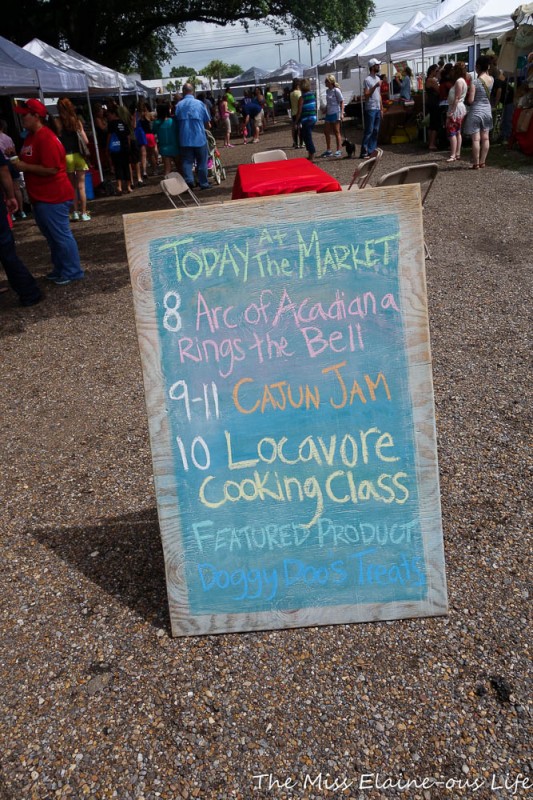 Today At The Market
8 Arc of Acadiana
Rings the Bell
9-11 Cajun Jam
10 Locavore
Cooking Class
Featured Product
Doggy Doo's Treats
The Miss Elaine-ous Life